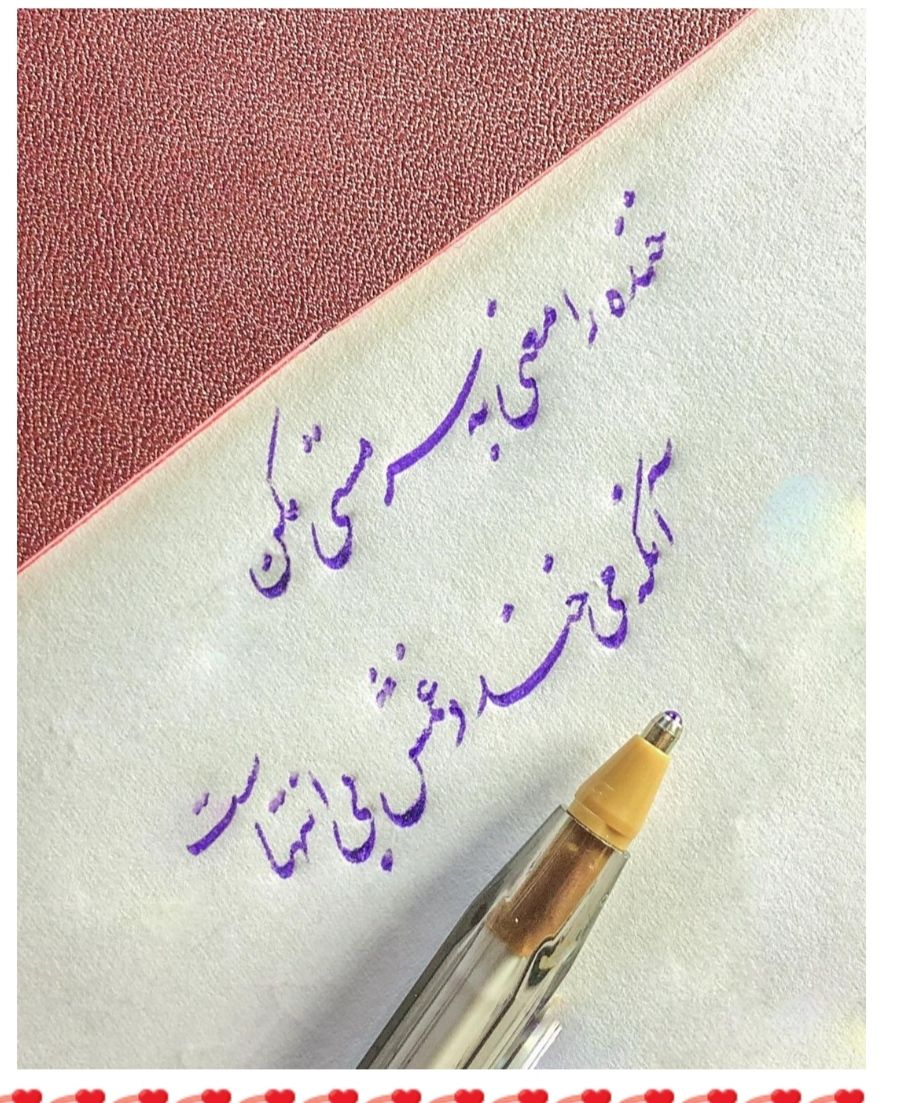 خنده را معنی به سرمستی مکن
آنکه می خندد غمش بی انتهاست